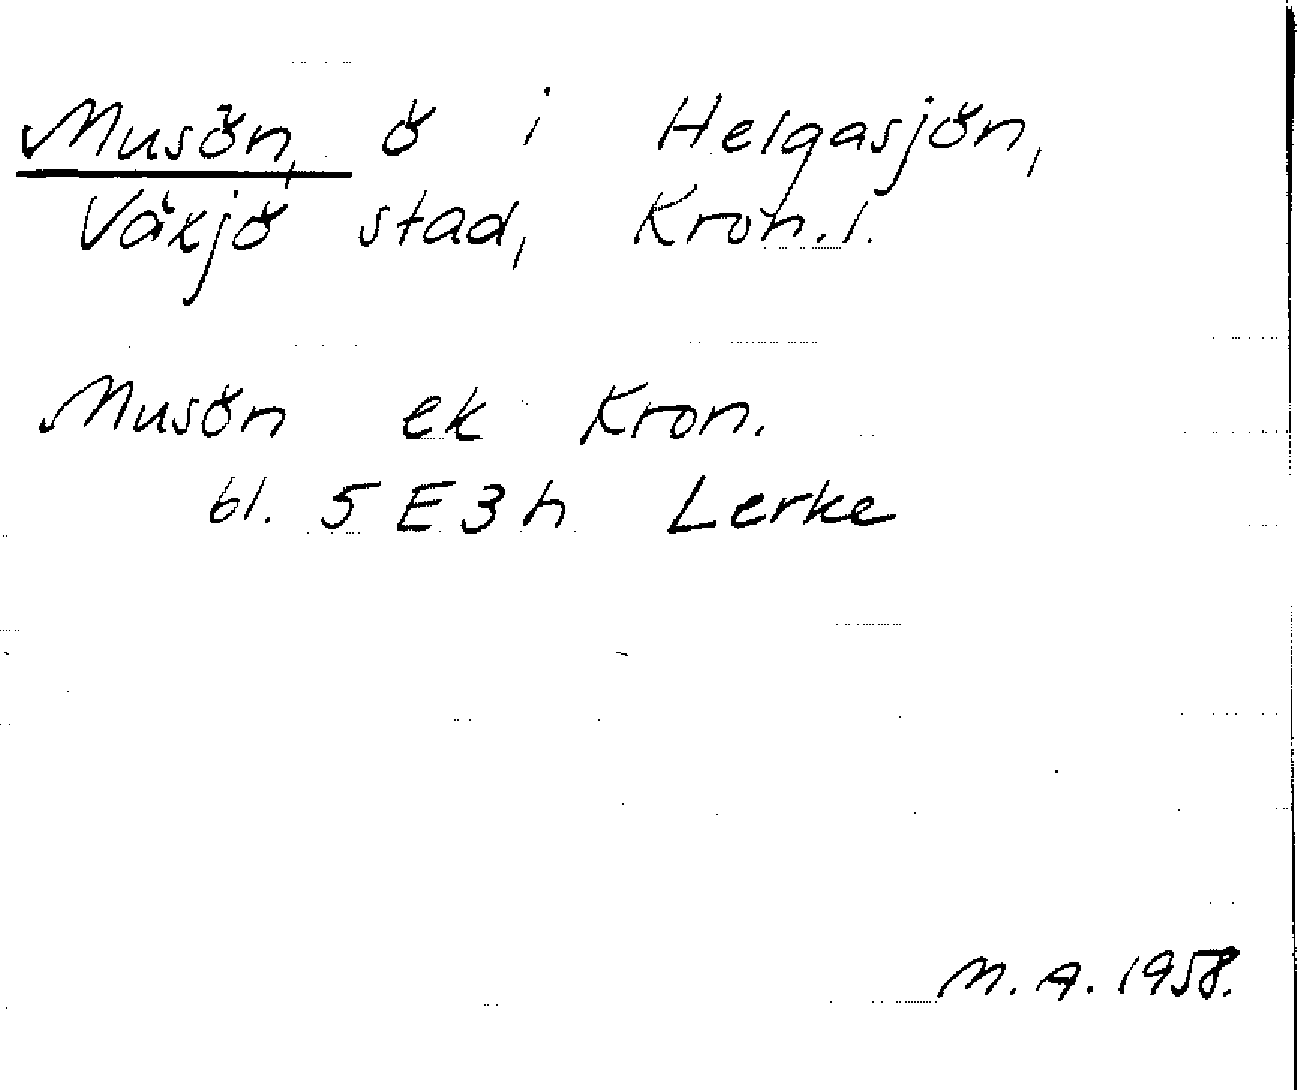 Musön, ö i Helgasjön,
Växjö stad, Kron.l.
Musön ek Kron.
bl. 5E3h Lerke
M.A. 1958.